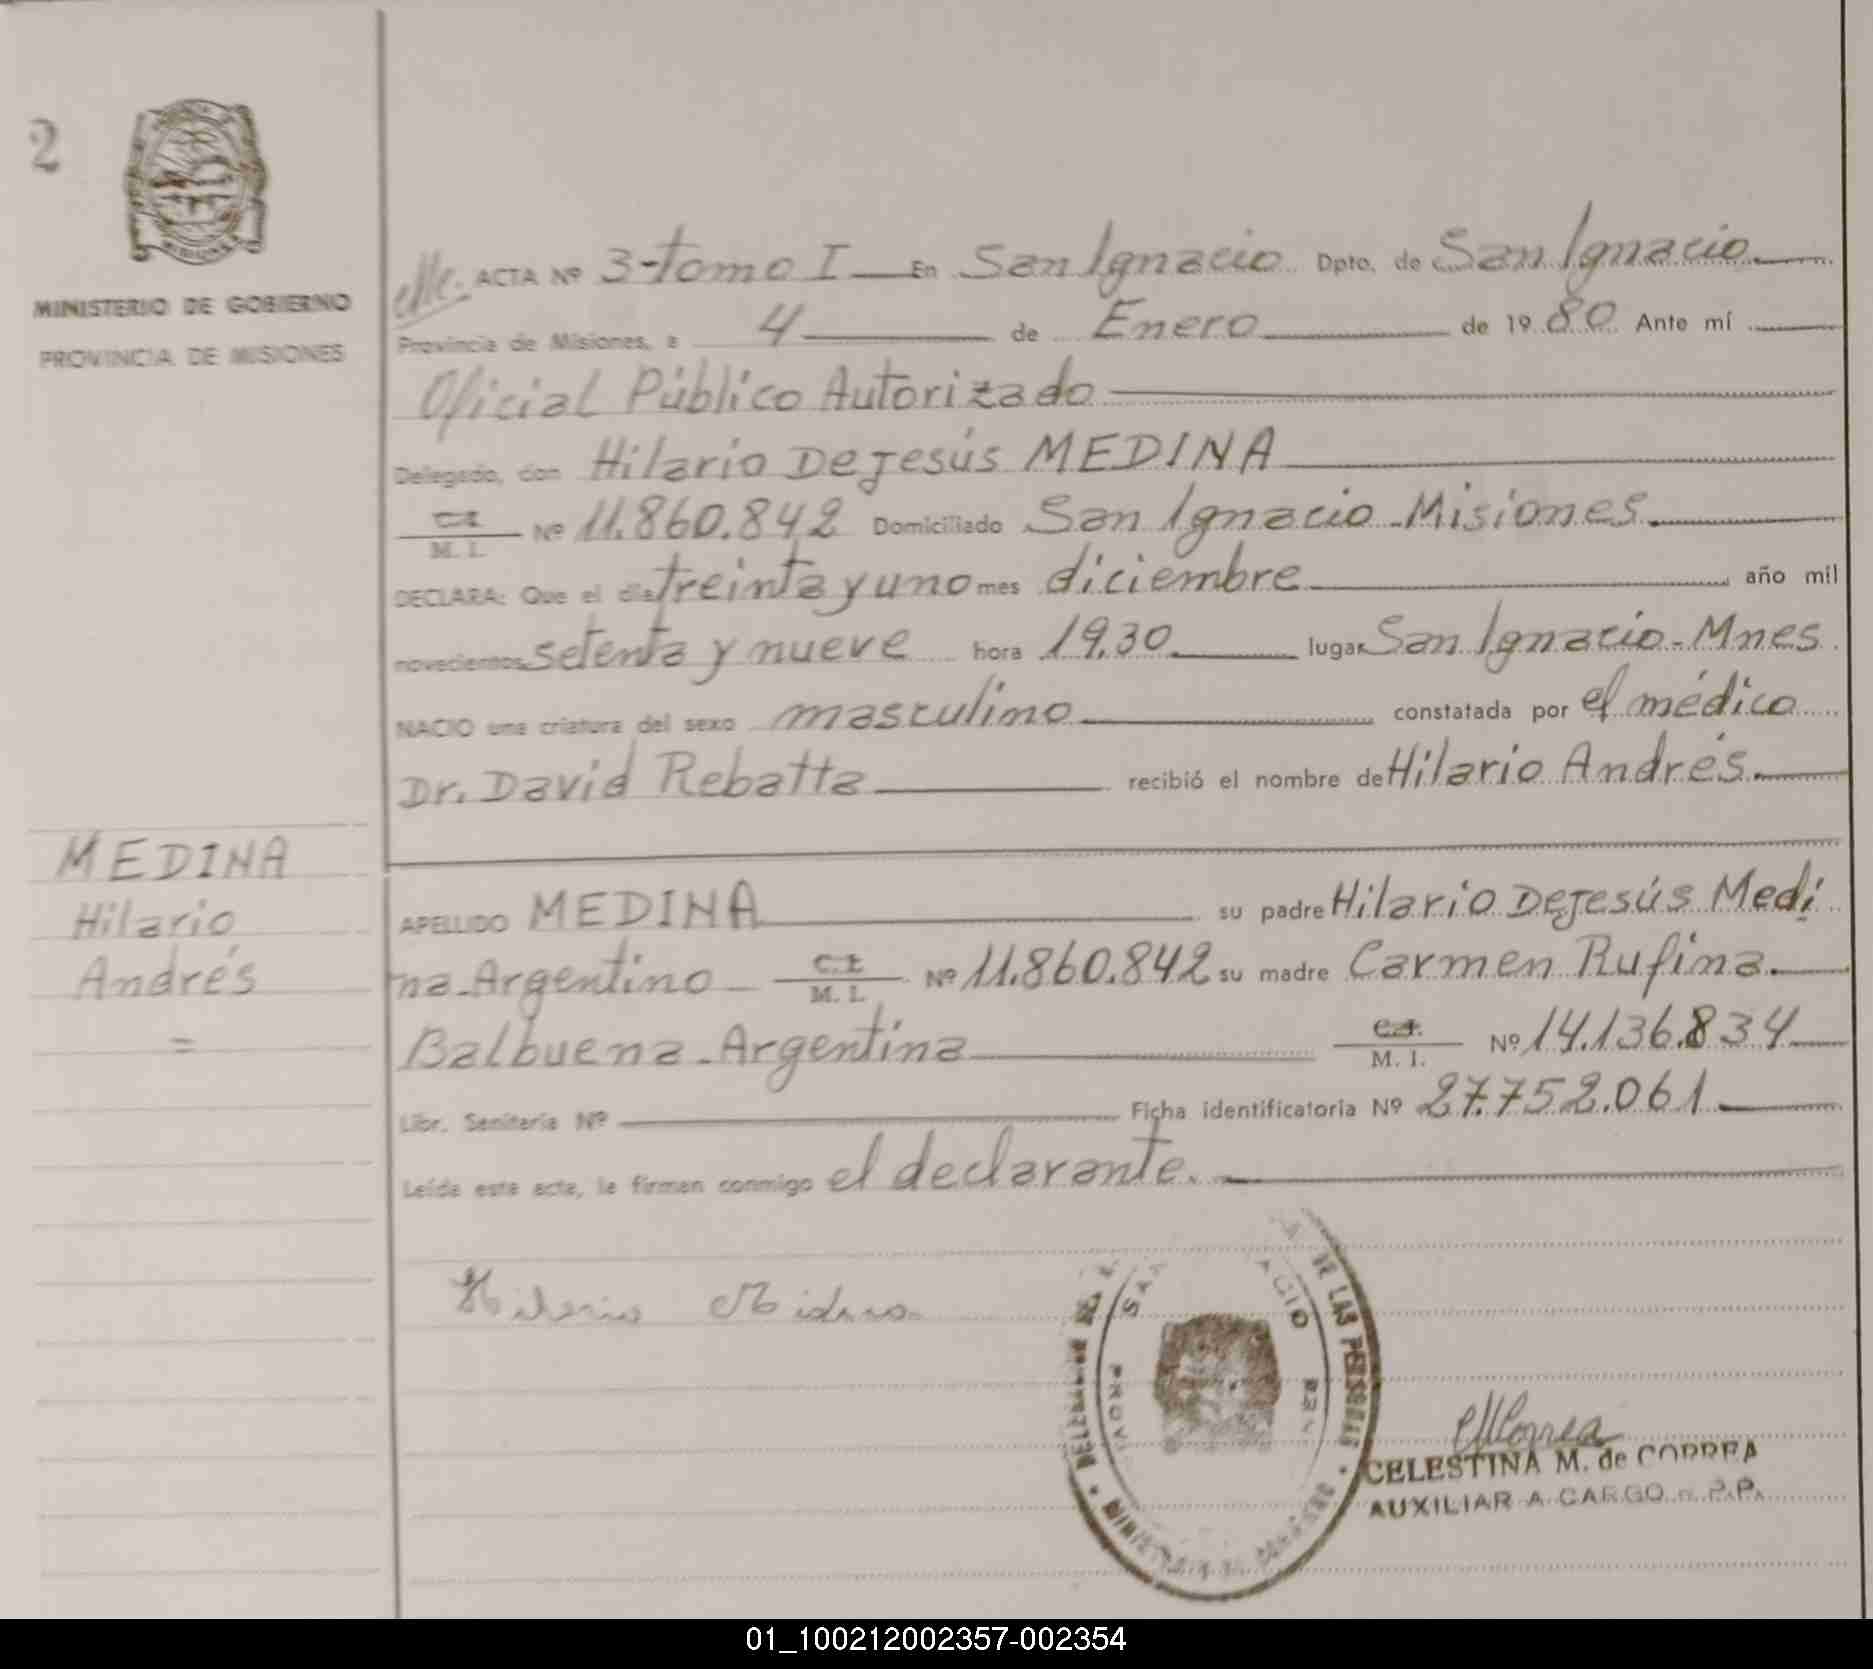 2
MINISTERIO DE GOBIERNO
PROVINCIA DE MISIONES
ACTA Nº 3-tomo I En San Ignacio Dpto. de San Ignacio
Provincia de Misiones, a 4 de Enero de 1980 Ante mí
Oficial Público Autorizado
Delegado, don Hilario DeJesús MEDINA
C.I.
M. I. Nº 11.860.842 Domiciliado San Ignacio-Misiones.
DECLARA: Que el día treinta y uno mes diciembre año mil
novecientos setenta y nueve hora 19,30 lugar San Ignacio-Mnes
NACIO una criatura del sexo masculino constatada por el médico
Dr. David Rebatta recibió el nombre de Hilario Andrés.
MEDINA
Hilario
Andrés
=
APELLIDO MEDINA su padre Hilario DeJesús Medi
na-Argentino C.I.
M. I. Nº 11.860.842 su madre Carmen Rufina.
Balbuena-Argentina C.I.
M. I. Nº 14.136.834
Libr. Sanitaria Nº Ficha identificatoria Nº 27.752.061
Leída esta acta, la firman conmigo el declarante.
Hilario Medina
DE LAS PERSONAS
PROV
CELESTINA M. de CORREA
AUXILIAR A CARGO R.P.P.
01_100212002357-002354